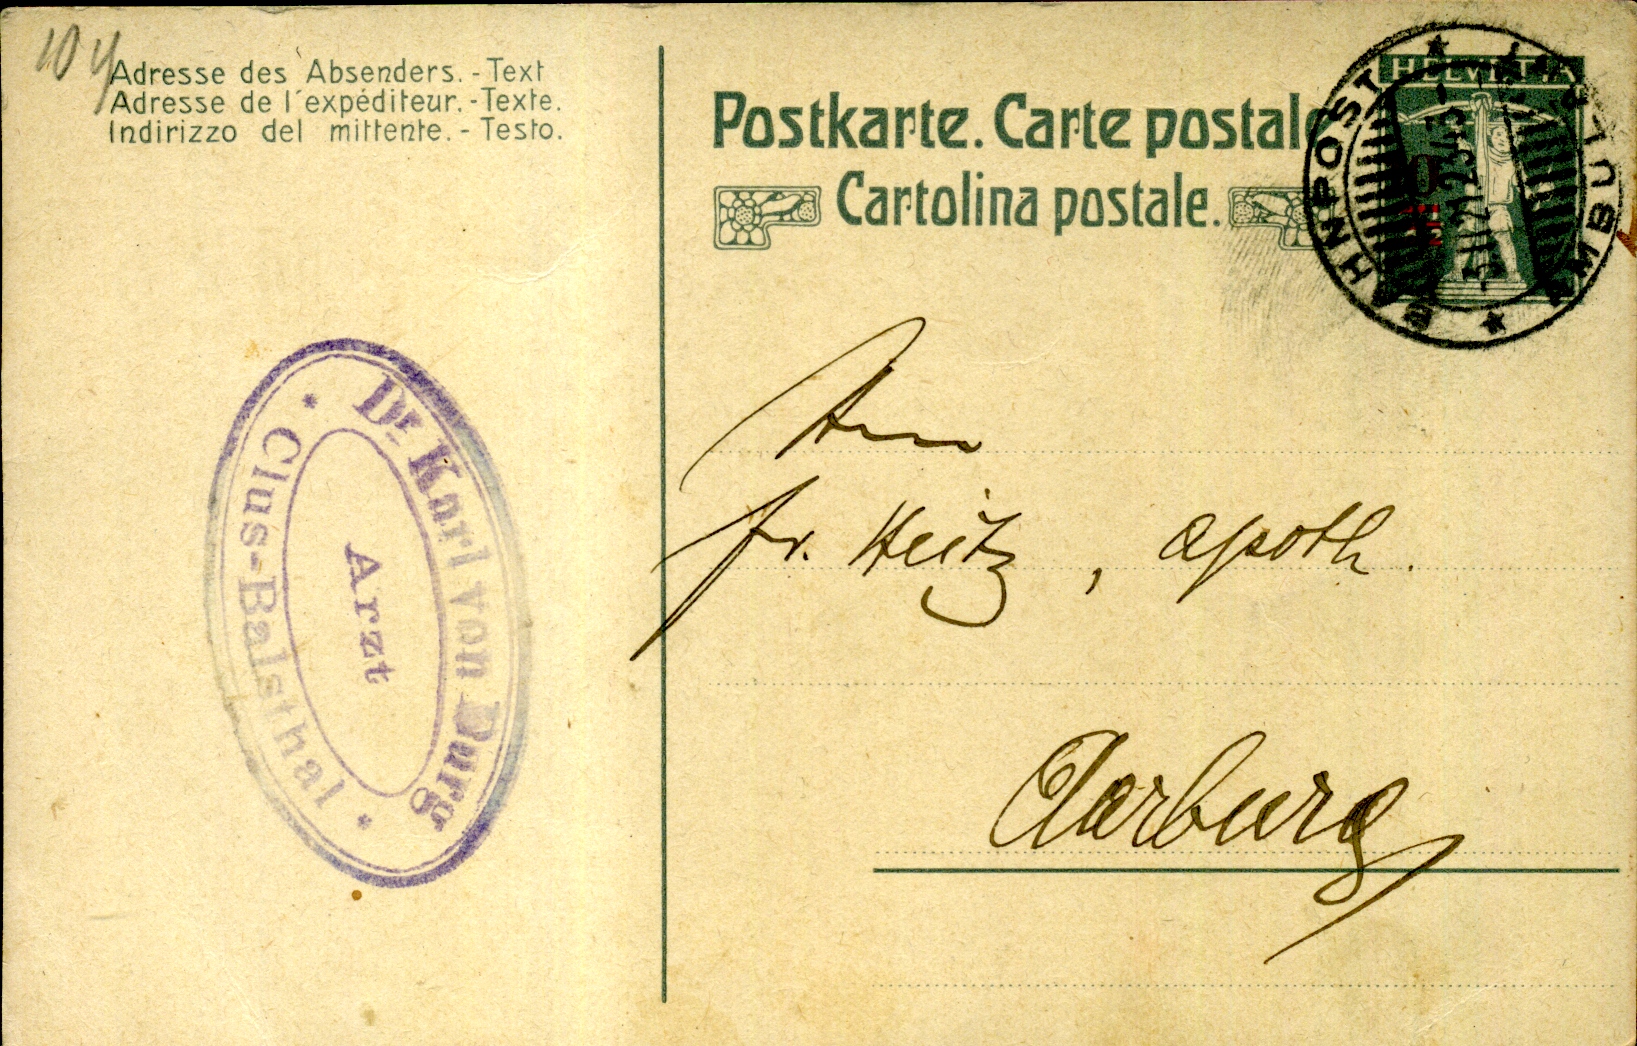 10 y
Adresse des Absenders. - Text
Adresse de l'expéditeur. - Texte.
Indirizzo del mittente. - Testo.
Postkarte. Carte postale
Cartolina postale.
HELVETIA
BAHNPOST
AMBULANT
Dr Karl von Burg
Arzt
Clus-Balsthal
fr. Heitz, apoth.
Aarburg